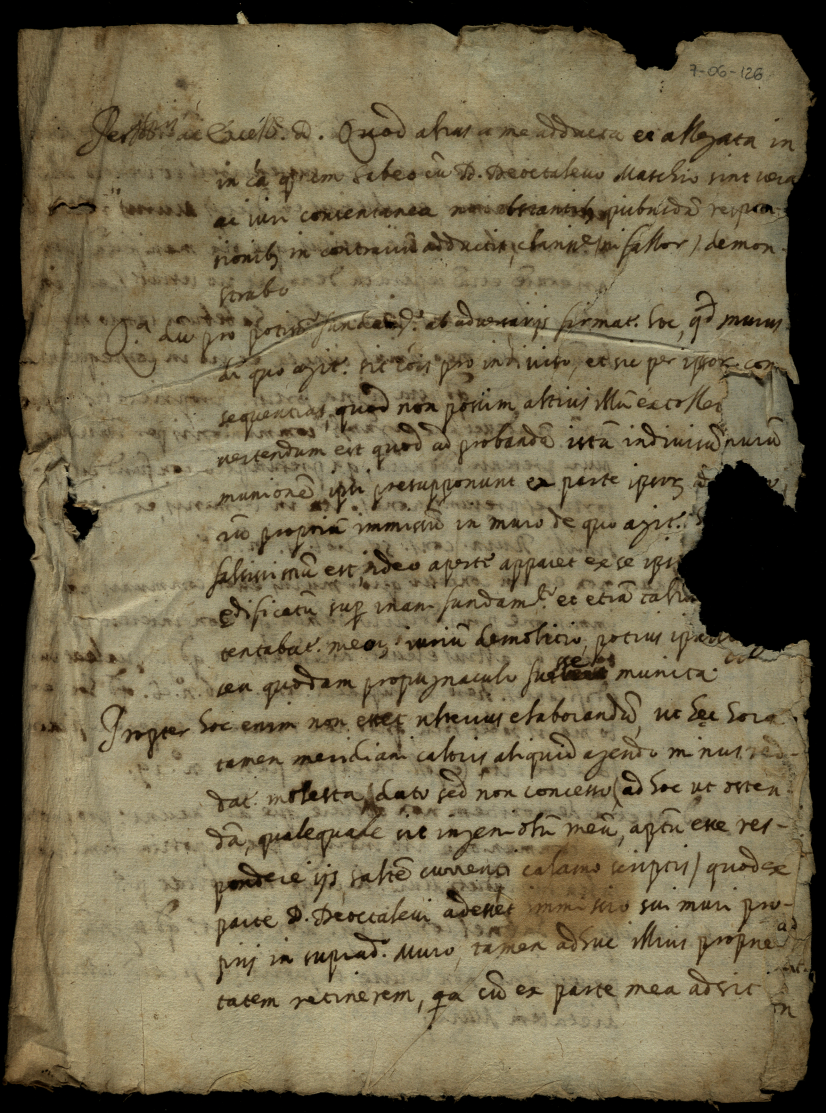 7-06-126
Quod alias a me adducta et allegata in
in ca quam habeo cu D. Deoctalevo Maschio sint vera
ac iuri consentanea non obstantib. quibusda respon-
sionib. in contrariu adductis, (ni fallor) demon-
strabo
ab adversarijs firmat. hoc, qd murus
de quo agit. sit cois pro indiviso, et sic per ipsor. con-
sequentias, quod non possim altius illu extollere
vertendum est quod ad probanda ista indivisu
munione ipsi presupponunt ex parte ipsor.
riu propriu immissu in muro de quo agit.
falsissimu est, ideo aperte apparet ex se ips
edificatu sup. inani fundam. et etia
tentabat. meor. iuriu demolitio, potius
ceu quodam propugnaculo munita.
Propter hoc enim non esset ulterius elaborandu, ut hec hora
tamen meridiani caloris aliquid agendo minus red-
dat. molesta, (dato sed non concesso, ad hoc ut osten-
da, qualequale sit ingeniolu meu, aptu esse res-
pondere ijs salte currenti calamo scriptis) quod ex
parte D. Deoctalevi adesset immissio sui muri pro-
prij in suprad. Muro, tamen adhuc illius proprie-
tatem retinerem, qa cu ex parte mea adsit